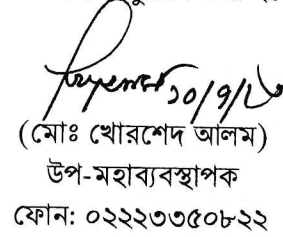 ১০/৭/২৩
(মোঃ খোরশেদ আলম)
উপ-মহাব্যবস্থাপক
ফোন: ০২২২৩৩৫০৮২২